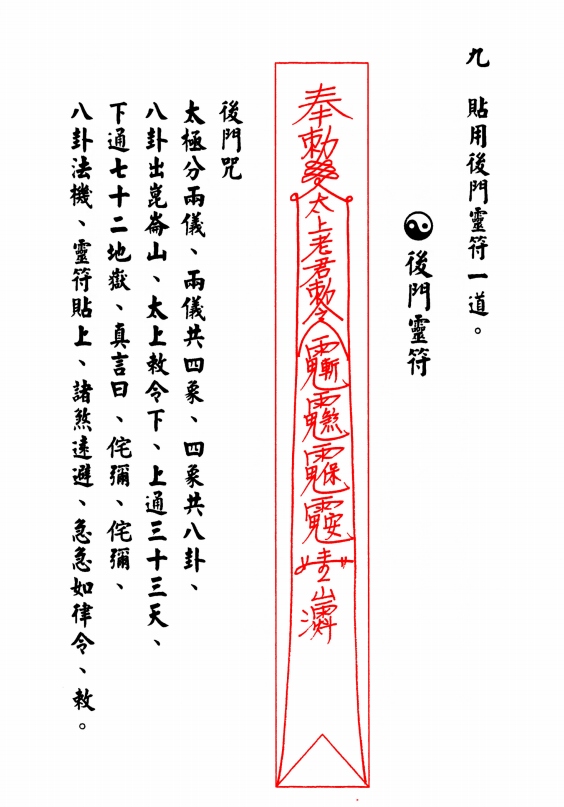 九 貼用後門靈符一道。
後門靈符
奉勅
太上老君勅令
後門咒
太極分兩儀、兩儀共四象、四象共八卦、
八卦出崑崙山、太上敕令下、上通三十三天、
下通七十二地獄、真言曰、侘彌、侘彌、
八卦法機、靈符貼上、諸煞遠避、急急如律令、敕。